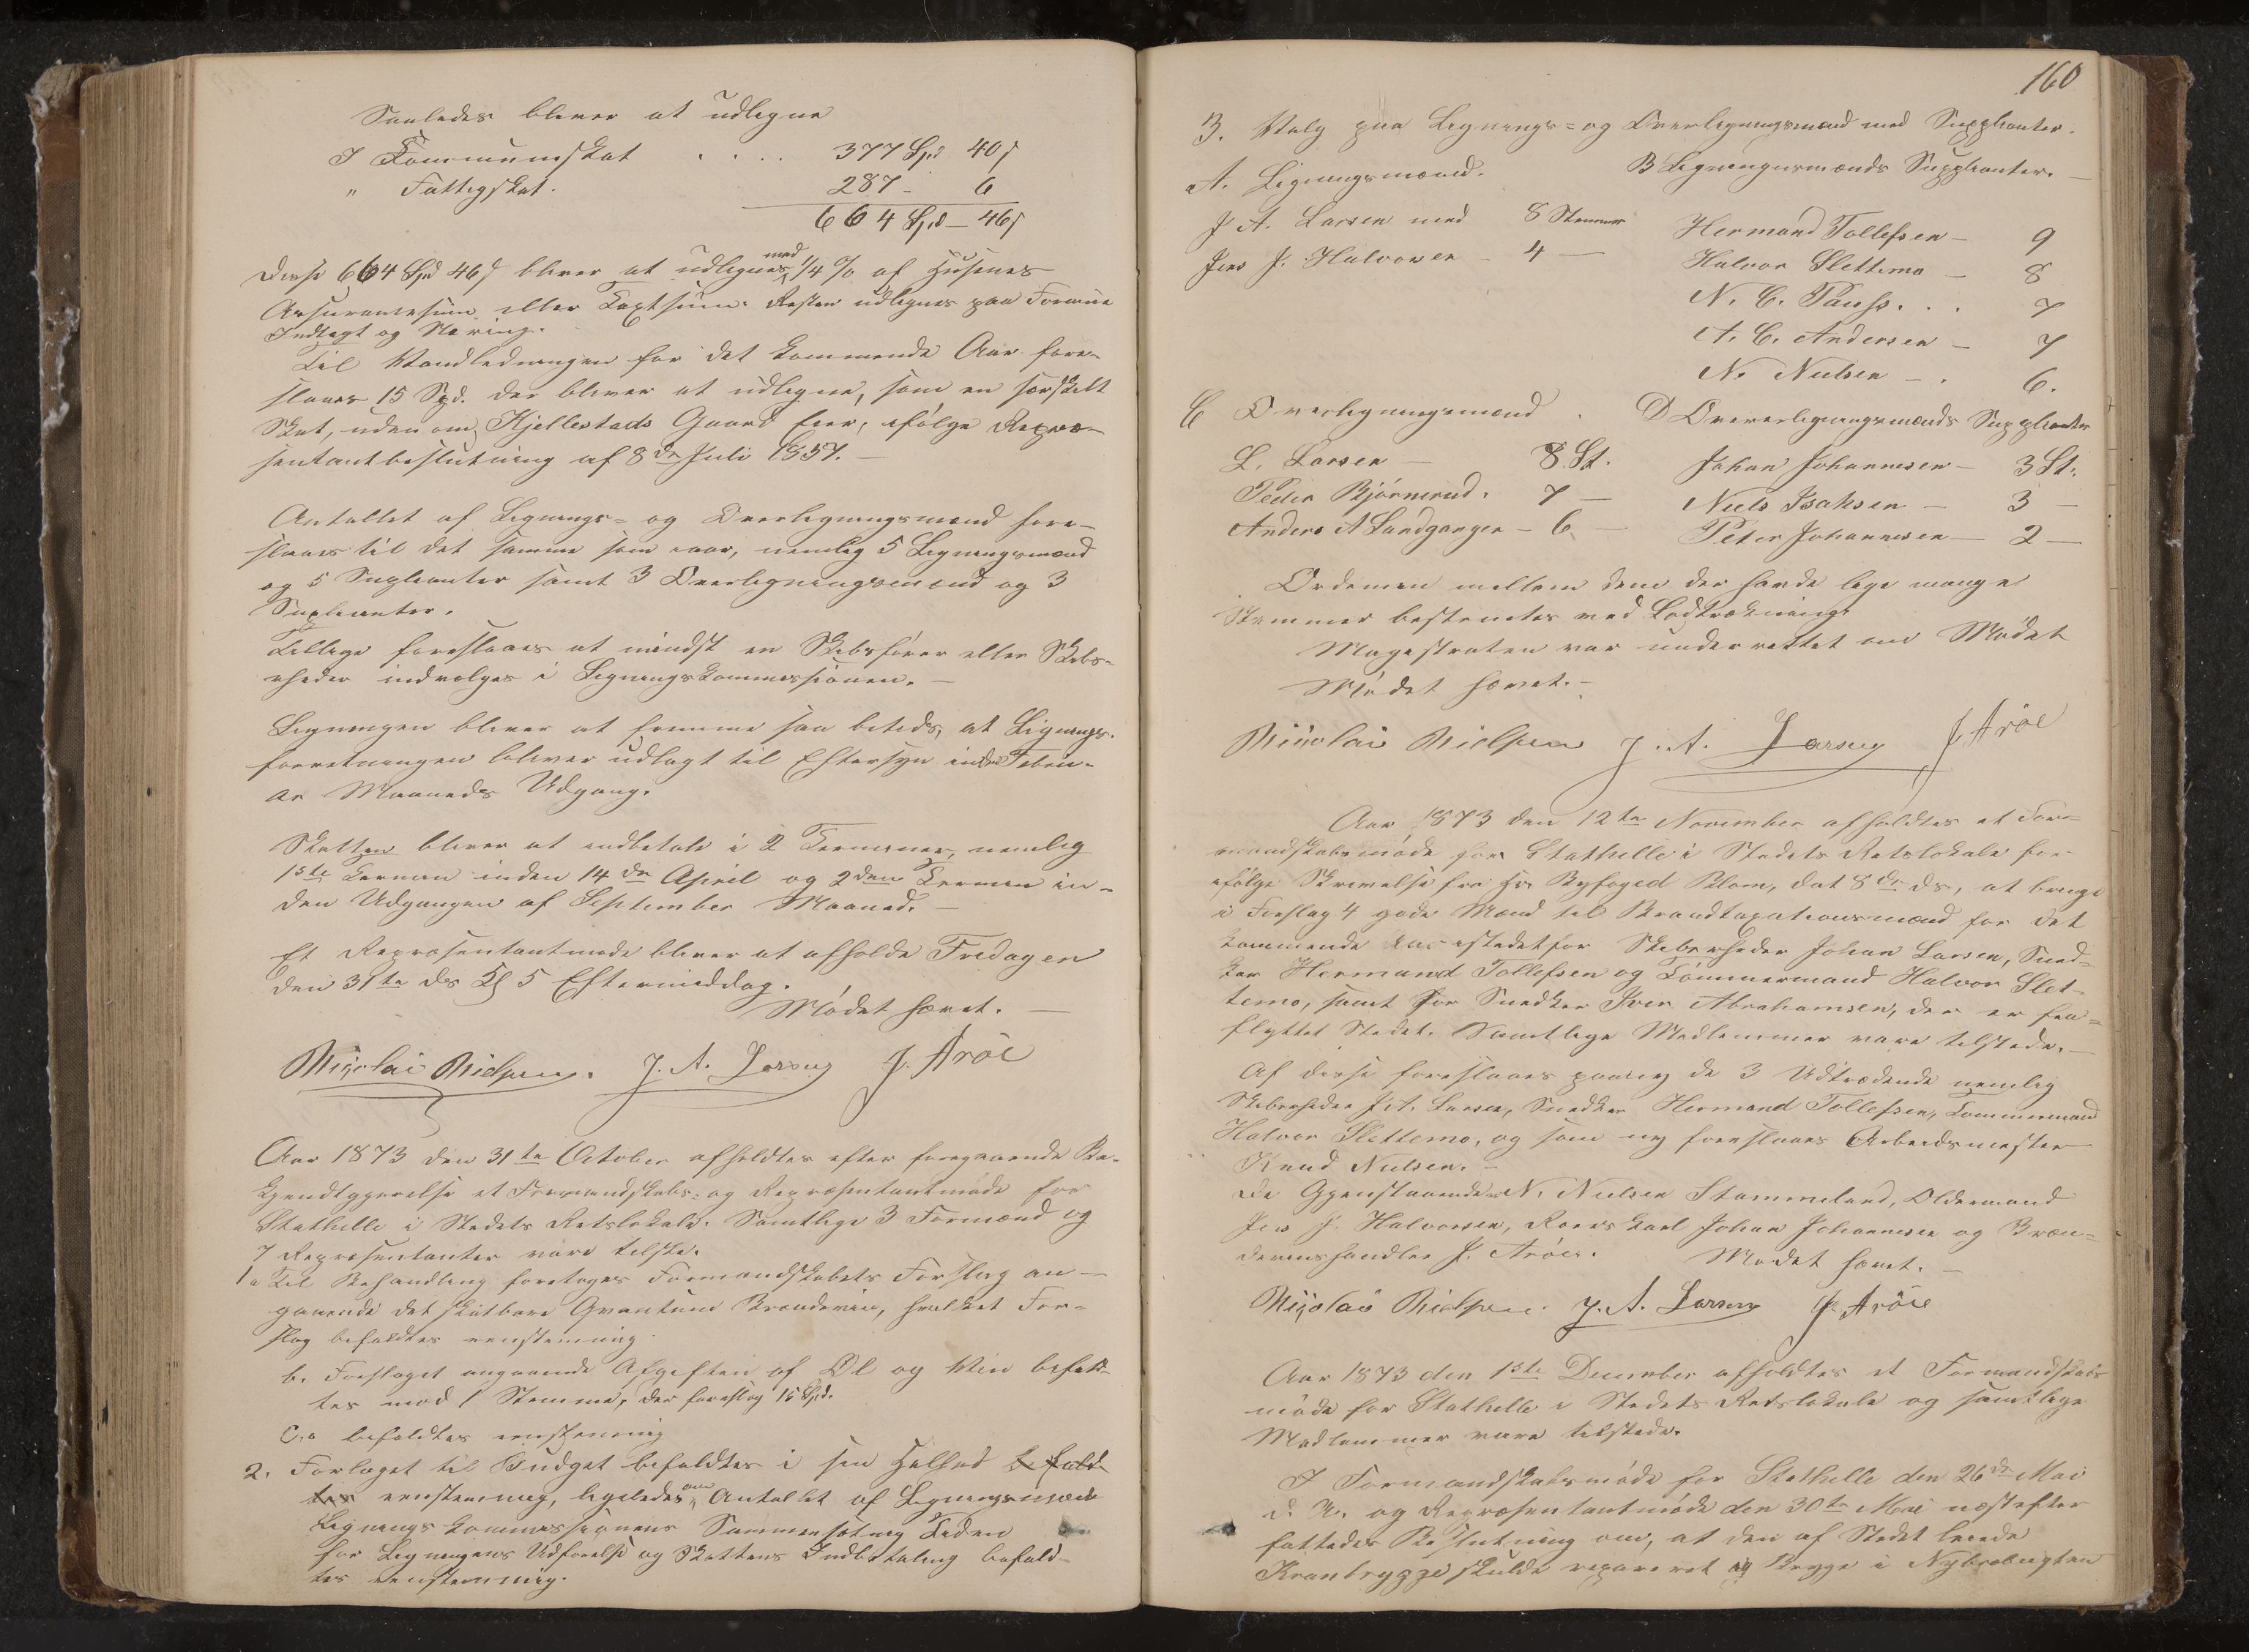 Saaledes bliver at udligne
I Kommuneskat . . . . 377 Spd 40 s
" Fattigskat. 287 - 6
664 Spd - 46 s
Disse 664 Spd 46 s bliver at udlignes med 1/4 % af Husenes
Assurancesum eller Taxtsum. Resten udlignes paa Formue
Indtægt og Næring.
Til Vandledningen for det kommende Aar fore-
slaaes 15 Spd. der bliver at udligne, som en særskilt
Skat, uden om Kjellestads Gaard Eier, ifølge Repræ-
sentantbeslutning af 8de Juli 1857. —
Antallet af Lignings- og Overligningsmænd fore-
slaaes til det samme som ivaar, nemlig 5 Ligningsmænd
og 5 Suplianter samt 3 Overligningsmænd og 3
Suplianter.
Tillige foreslaaes at mindst en Skibsfører eller Skibs-
rheder indvælges i Ligningskommissionen. —
Ligningen bliver at fremme saa betids, at Lignings-
forretningen bliver udlagt til Eftersyn inden Febru-
ar Maaneds Udgang.
Skatten bliver at indbetale i 2 Terminer, nemlig
1ste Termin inden 14de April og 2den Termin in-
den Udgangen af September Maaned. —
Et Repræsentantmøde bliver at afholde Fredagen
den 31te ds Kl 5 Eftermiddag.
Mødet hævet. —
Nicolai Nielsen. J. A. Larsen J. Arøe
Aar 1873 den 31te October afholdtes efter foregaaende Be-
kjendtgjørelse et Formandskabs- og Repræsentantmøde for
Stathelle i Stedets Retslokale. Samtlige 3 Formænd og
7 Repræsentanter vare tilste.
1 a Til Behandling foretoges Formandskabets Forslag an-
gaaende det skatbare Qvantum Brændeviin, hvilket For-
slag befaldtes eenstemmig.
b. Forslaget angaaende Afgiften af Øl og Vin befald-
tes mod 1 Stemme, der foreslog 15 Spd.
C. befaldtes eenstemmig
2. Forlaget til Budget befaldtes i sin Helhed befald-
tes eenstemmig, ligeledes om Antallet af Ligningsmænd
Ligningskommissionens Sammensætning Tiden
for Ligningens Udførelse og Skattens Indbetaling befald-
tes eenstemmig.
160
3. Valg paa Lignings- og Overligningsmænd med Suplianter.
A. Ligningsmænd. B Ligningsmænds Suplianter. —
J. A. Larsen med 8 Stemmer Hermand Tollefsen — 9
Jens J. Halvorsen — 4 — Halvor Slettemo — 8
N. C. Paus . . . 7
A. C. Andersen — 7
N. Nielsen — . 6.
C Overligningsmænd . D Overligningsmænds Suplianter
L. Larsen — 8 St. Johan Johannesen — 3 St.
Peder Bjørnerud. 7 — Niels Isaksen — 3 —
Anders A Landganger — 6 — Peter Johannesen — 2 —
Ordenen mellem dem der havde lige mange
Stemmer bestemtes ved Lodtrækning.
Magistraten var underrettet om Mødet
Mødet hævet. —
Nicolai Nielsen J. A. Larsen J. Arøe
Aar 1873 den 12te November afholdtes et For-
mandskabsmøde for Stathelle i Stedets Retslokale for
ifølge Skrivelse fra Hr. Byfoged Blom, dat 8de ds, at bringe
i Forslag 4 gode Mænd til Brandtaxationsmænd for det
kommende Aar istedetfor Skibsrheder Johan Larsen, Sned-
ker Hermand Tollefsen og Tømmermand Halvor Slet-
temo, samt for Snedker Iver Abrahamsen, der er fra-
flyttet Stedet. Samtlige Medlemmer vare tilstede. —
Af disse foreslaaes paany de 3 Udtrædende nemlig
Skibsrheder J. A. Larsen, Snedker Hermand Tollefsen, Tømmermand
Halvor Slettemo, og som ny foreslaaes Arbeidsmester
Knud Nielsen. —
De Gjenstaaende: N. Nielsen Stammeland, Oldermand
Jens J. Halvorsen, Roerskarl Johan Johannesen og Bræn-
deviinshandler J. Arøe. Mødet hævet. —
Nicolai Nielsen. J. A. Larsen J. Arøe
Aar 1873 den 1ste December afholdtes et Formandskabs
møde for Stathelle i Stedets Retslokale og samtlige
Medlemmer vare tilstede.
I Formandskabsmøde for Stathelle den 26de Mai
d. A. og Repræsentantmøde den 30te Mai næstefter
fattedes Beslutning om, at den af Stedet leiede
Kranbrygge skulde repareret og Brygge i Nybrobugten